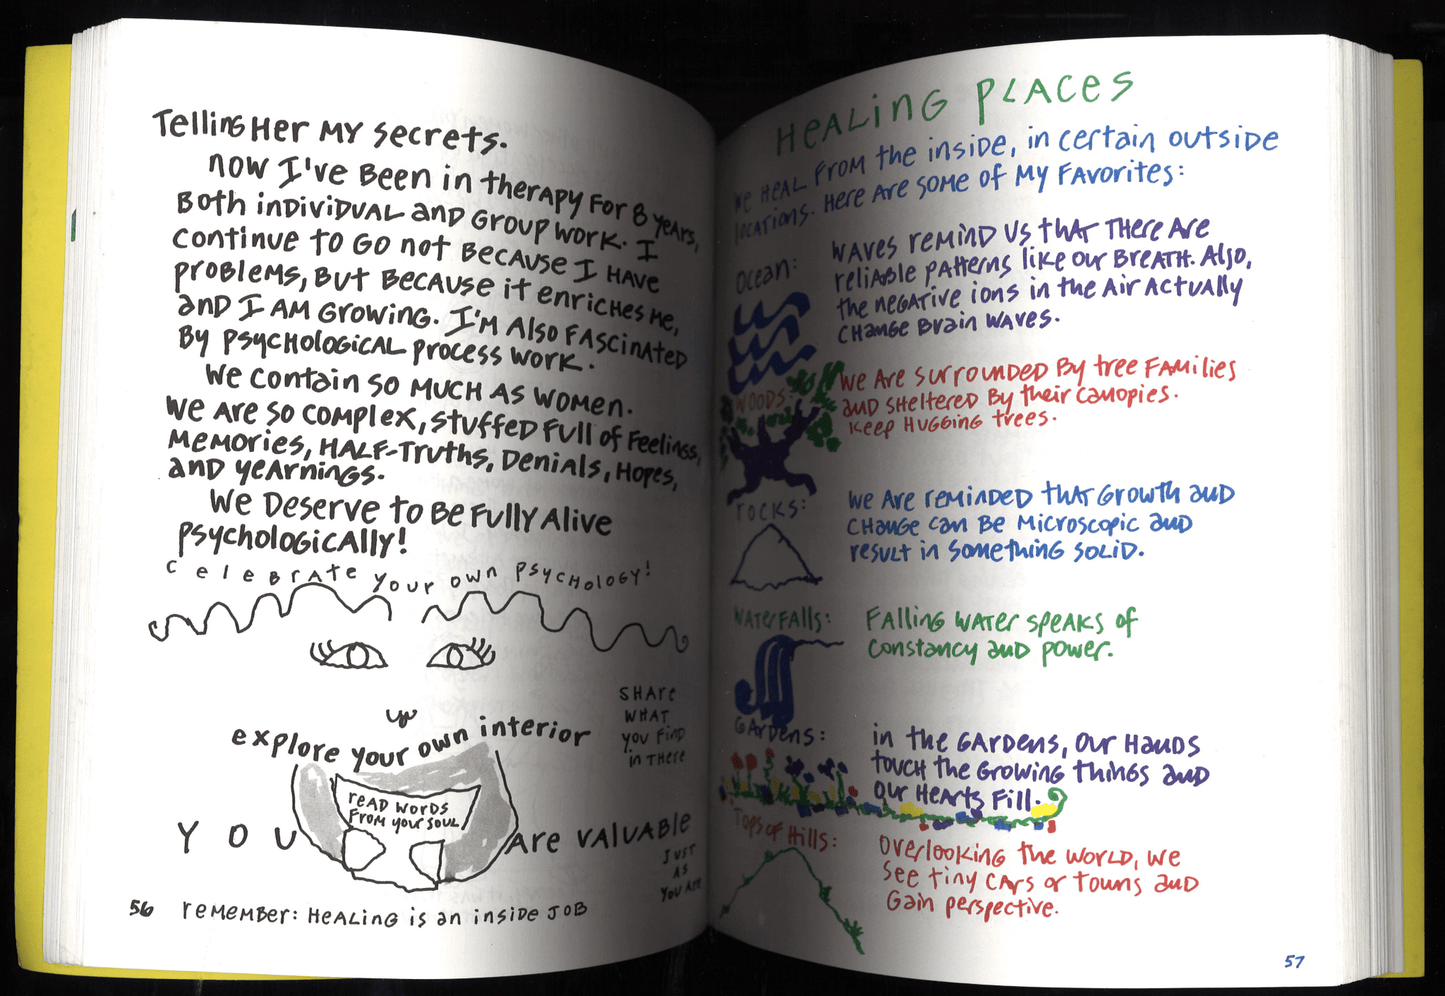 Telling Her My secrets.
now I've Been in therapy For 8 years,
Both individual and Group work. I
continue to Go not Because I Have
problems, But Because it enriches me,
and I Am Growing. I'm Also Fascinated
By psychological process work.
We contain so much as women.
We are so complex, stuffed full of Feelings,
Memories, Half-Truths, Denials, Hopes,
and yearnings.
We Deserve to Be Fully Alive
psychologically!
celebrate your own psychology!
explore your own interior
SHARE
WHAT
you Find
in THERE
read words
From your soul
YOU are VALUABLE
JUST
AS
YOU ARE
56 remember: Healing is an inside Job
Healing places
We Heal From the inside, in certain outside
locations. Here Are some of My Favorites:
Ocean:
Waves remind us that There Are
reliable patterns like our Breath. Also,
the negative ions in the Air Actually
change Brain waves.
Woods:
We Are surrounded By tree Families
and sheltered By their canopies.
Keep Hugging trees.
rocks:
We Are reminded that Growth and
change can Be Microscopic and
result in something solid.
Waterfalls:
Falling water speaks of
constancy and power.
Gardens:
in the Gardens, our Hands
touch the Growing things and
our Hearts Fill.
Tops of Hills:
Overlooking the world, we
see tiny cars or towns and
Gain perspective.
57